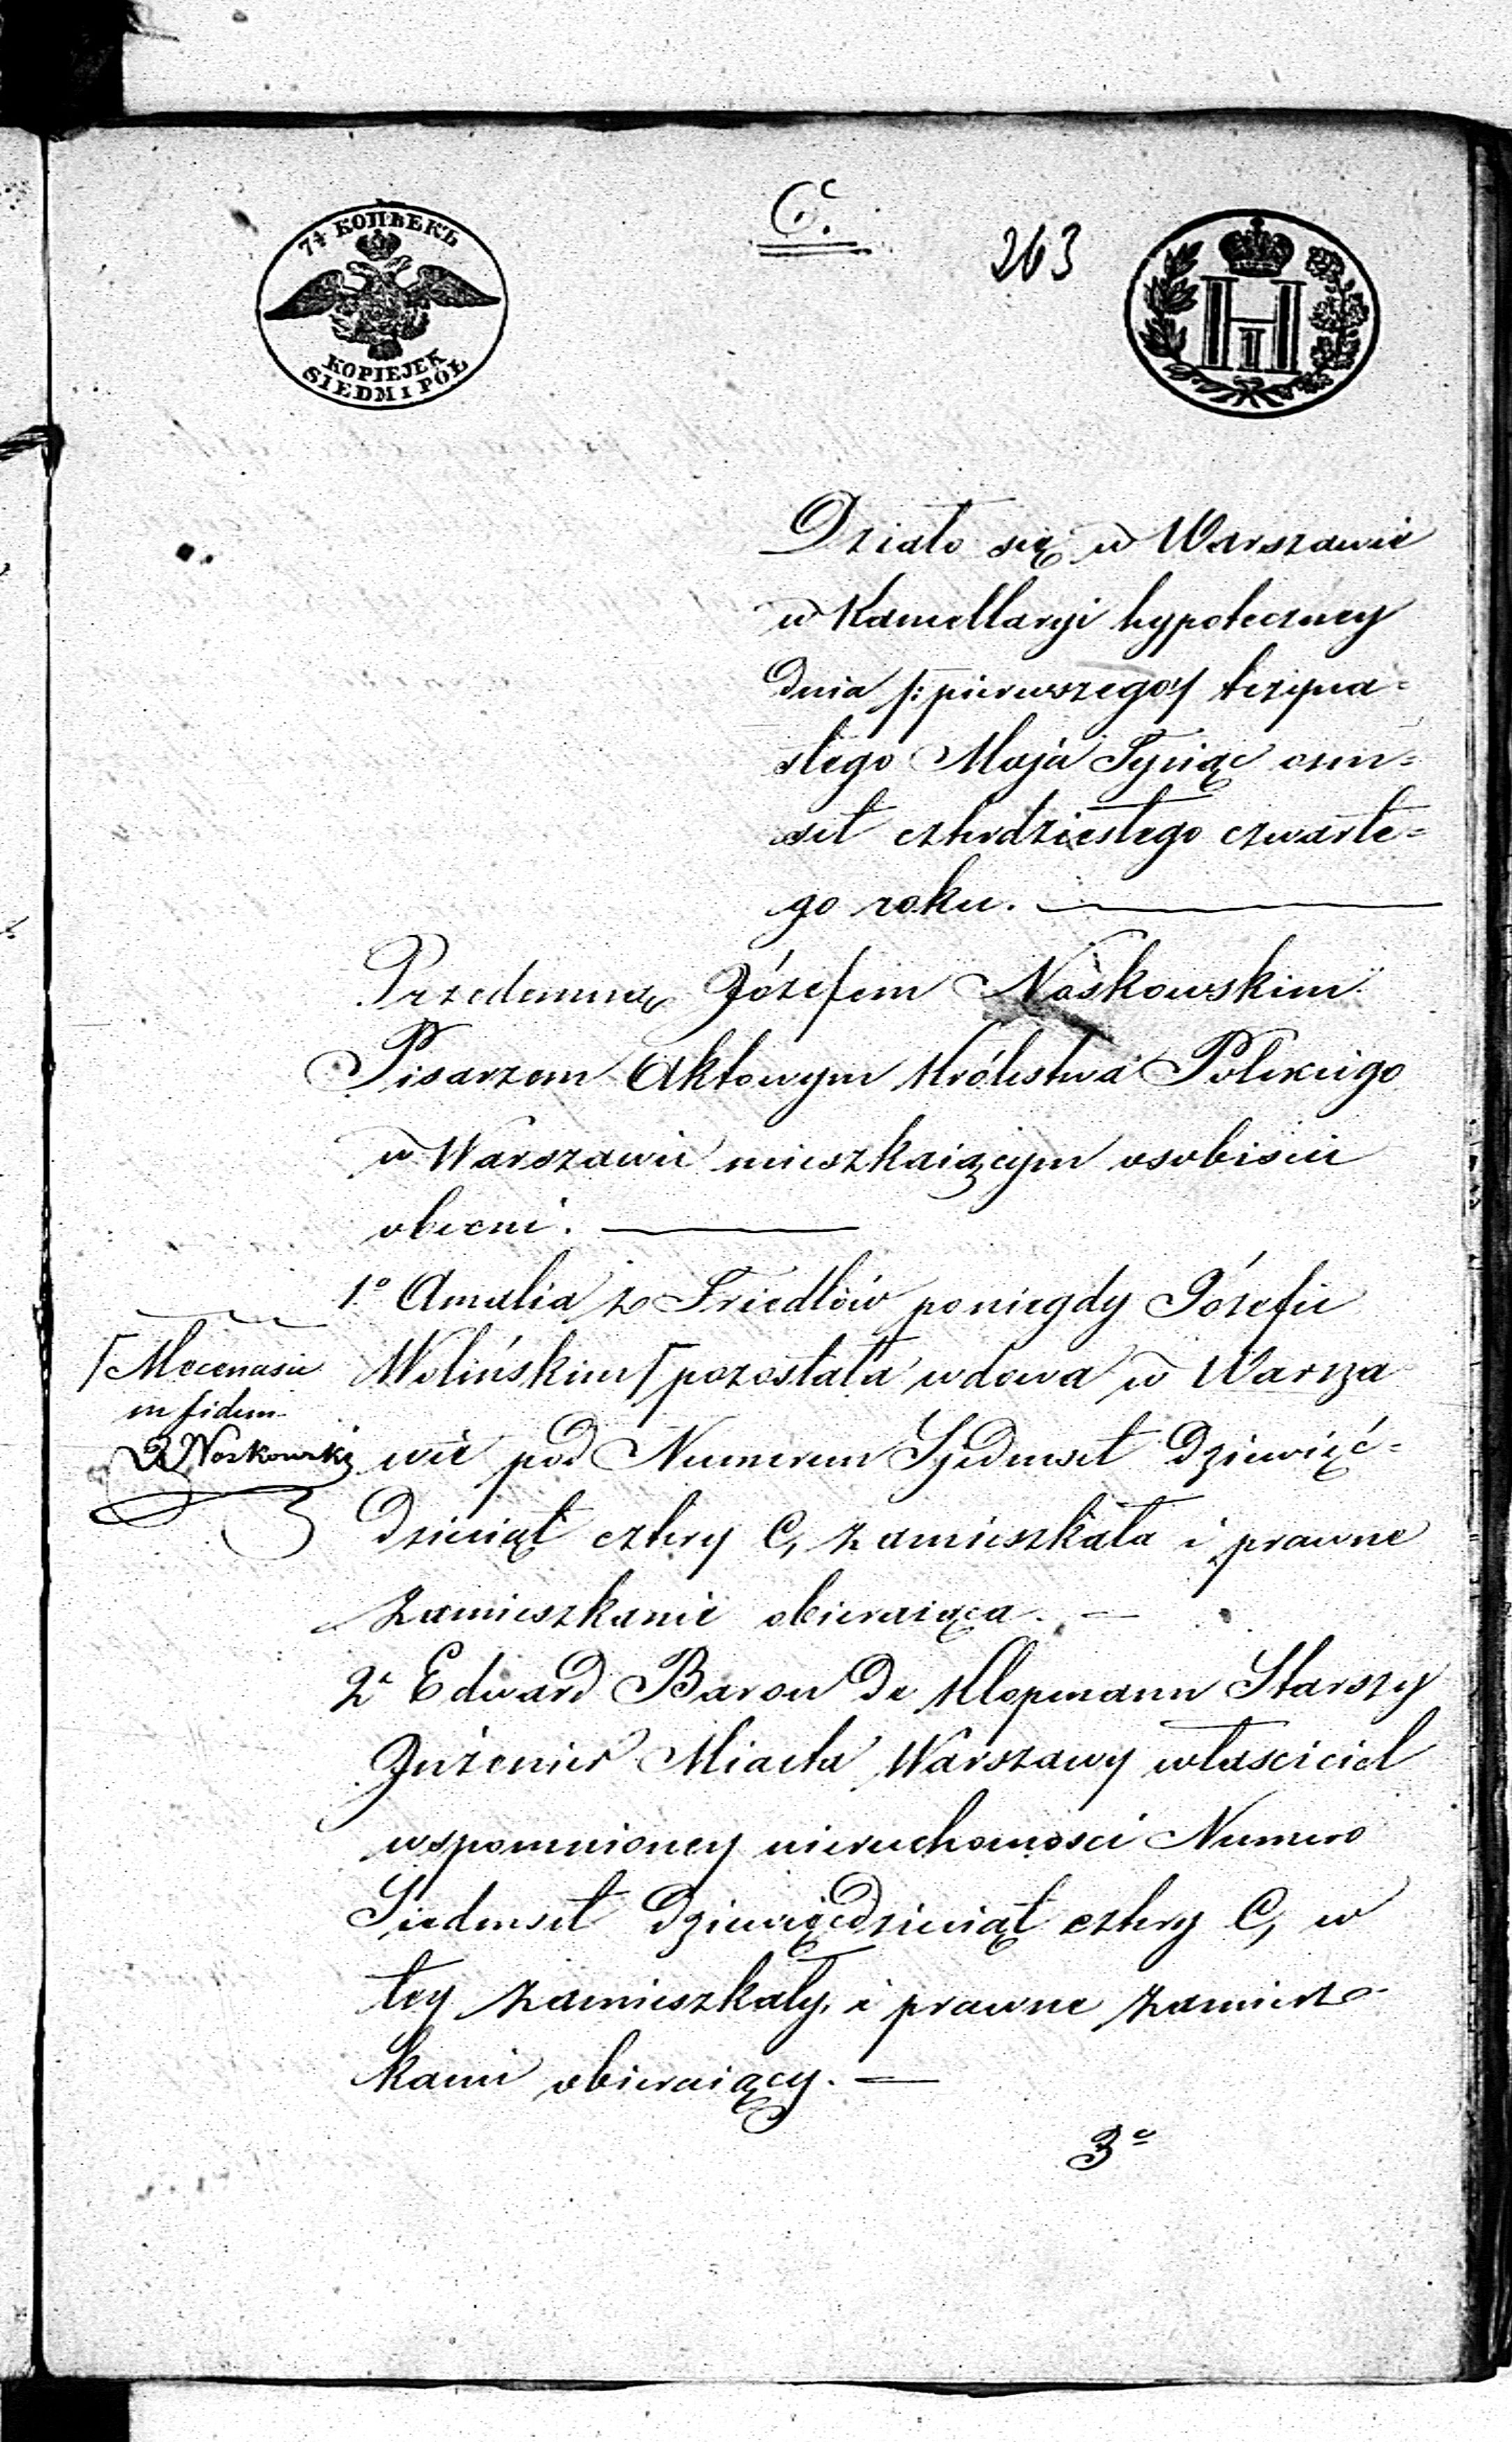 7½ КОПѢЕКЪ
KOPIEJEK
SIEDM I PÓŁ
C.
263
Działo się w Warszawie
w Kancellaryi hypoteczney
dnia /: pierwszego :/ trzyna=
stego Maja Tysiąc osm=
set czterdziestego czwarte=
go roku.
Przedemną Józefem Noskowskim
Pisarzem Aktowym Królestwa Polskiego
w Warszawie mieszkaiącym osobiście
obecni.
1.o Amalia z Friedlów po niegdy Józefie
Wolińskim ⌈ pozostała wdowa w Warsza
⌈ Mecenasie
in fidem
J Noskowski
wie pod Numerem Siedmset Dziewięć=
dziesiąt cztery C, zamieszkała i prawne
zamieszkanie obieraiąca. —
2o Edward Baron de Klopmann Starszy
Inżenier Miasta Warszawy właściciel
wspomnioney nieruchomosci Numero
Siedmset dziewięćdziesiąt cztery C, w
tey zamieszkały, i prawne zamiesz-
kanie obieraiący. —
3o